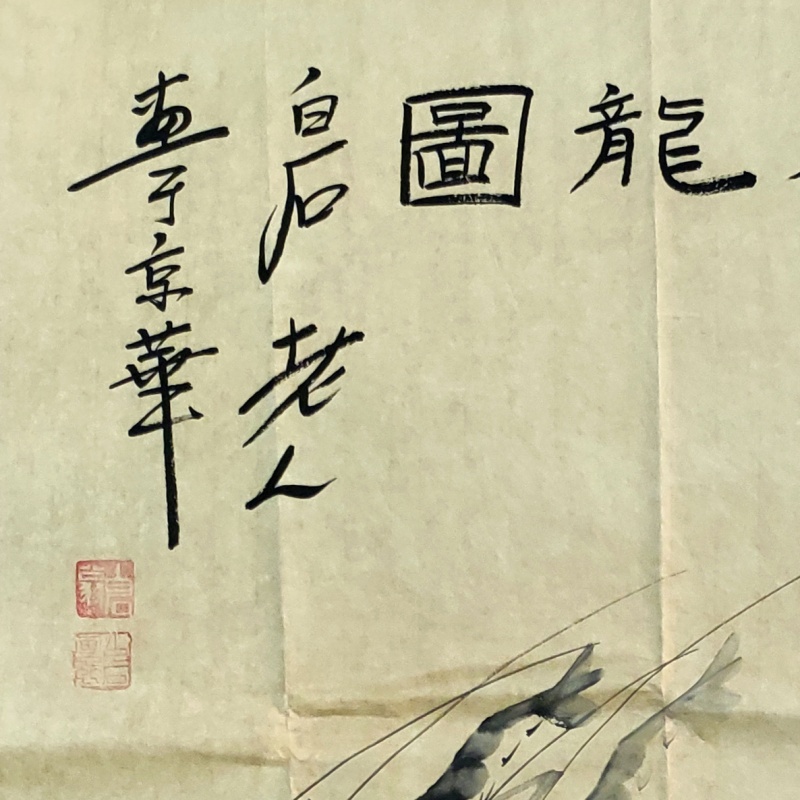 龍圖
白石老人
畫于京華